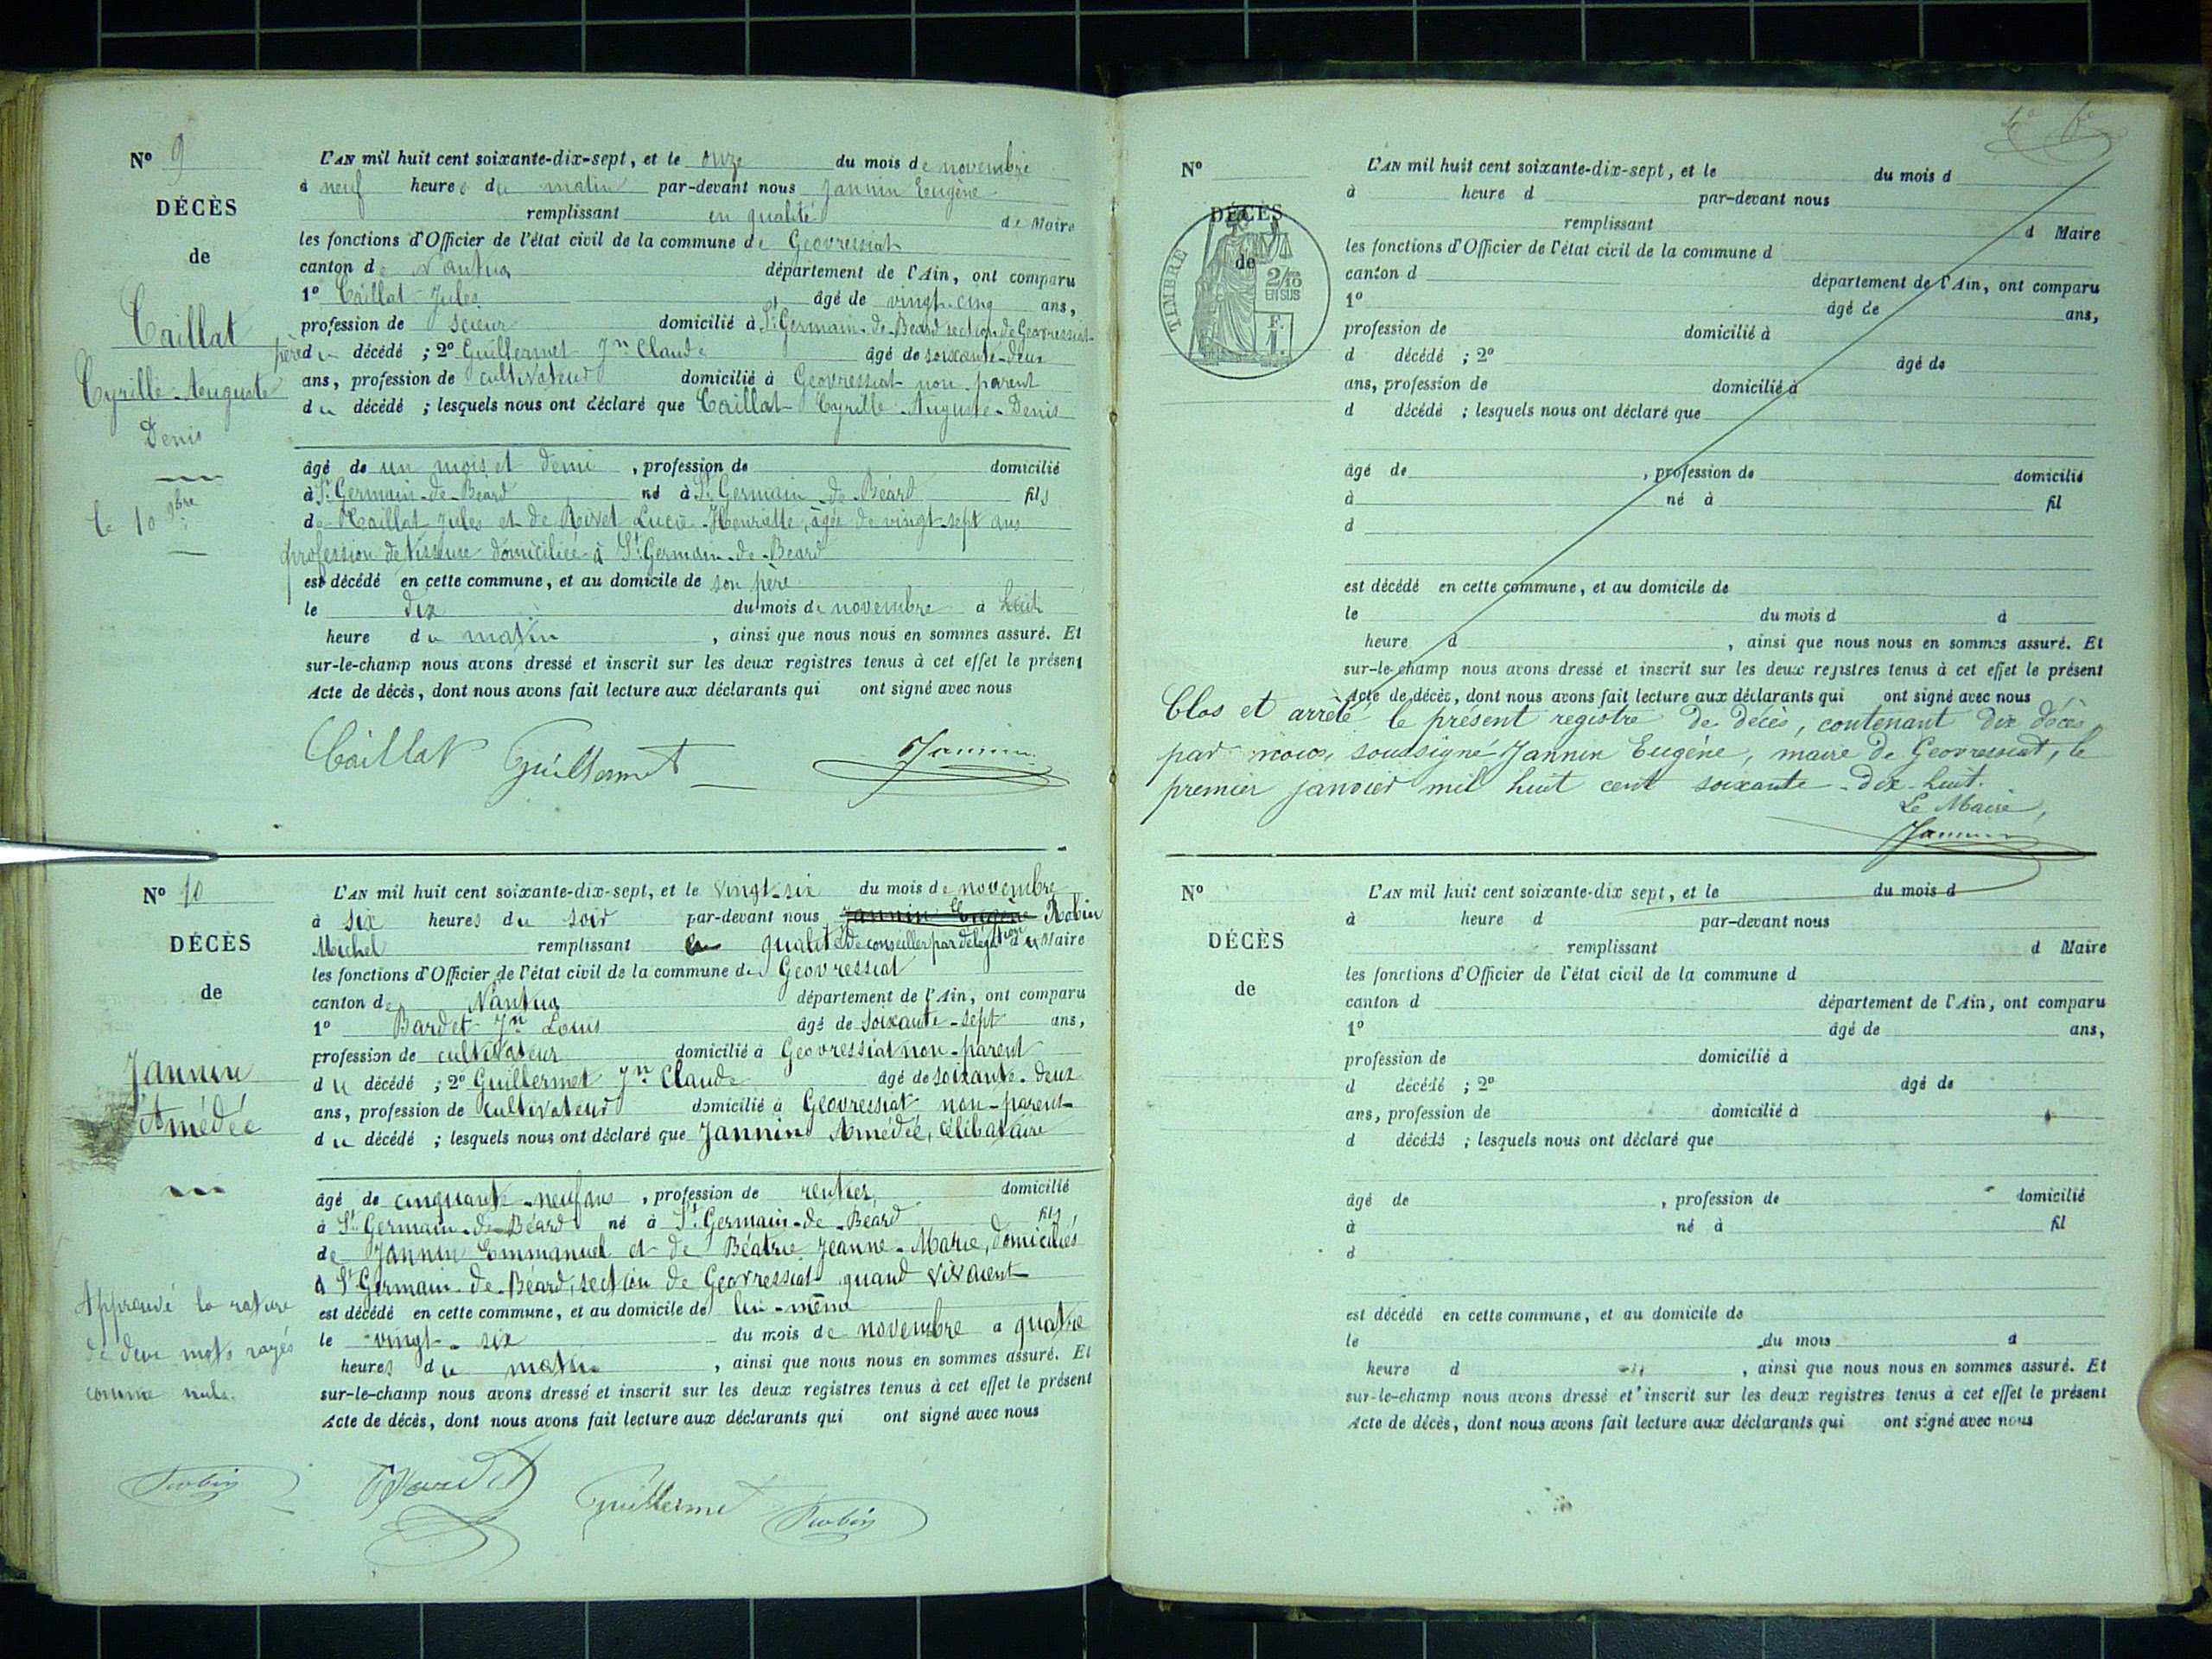 N° 9
DÉCÈS
de
Caillat
Cyrille-Auguste
Denis
le 10 9bre
L'AN mil huit cent soixante-dix-sept, et le onze du mois de novembre
à neuf heures du matin par-devant nous Jannin Eugène
remplissant en qualité de Maire
les fonctions d'Officier de l'état civil de la commune de Geovressiat
canton de Nantua département de l'Ain, ont comparu
1° Caillat Jules âgé de vingt-cinq ans,
profession de scieur domicilié à St Germain-de-Béard section de Geovressiat
père du décédé ; 2° Guillermet Jn Claude âgé de soixante-deux
ans, profession de cultivateur domicilié à Geovressiat non parent
du décédé ; lesquels nous ont déclaré que Caillat Cyrille-Auguste-Denis
âgé de un mois et demi , profession de domicilié
à St Germain-de-Béard né à St Germain-de-Béard fils
de Caillat Jules et de Rivet Lucie-Henriette, âgée de vingt-sept ans
profession de tisseuse domiciliée à St Germain-de-Beard
est décédé en cette commune, et au domicile de son père
le dix du mois de novembre à huit
heure du matin , ainsi que nous nous en sommes assuré. Et
sur-le-champ nous avons dressé et inscrit sur les deux registres tenus à cet effet le présent
Acte de décès, dont nous avons fait lecture aux déclarants qui ont signé avec nous
Caillat Guillermet Jannin
N° 10
DÉCÈS
de
Jannin
Amédée
Approuvé la rature
de deux mots rayés
comme nuls.
L'AN mil huit cent soixante-dix-sept, et le vingt-six du mois de novembre
à six heures du soir par-devant nous Jannin Eugène Robin
Michel remplissant en qualité de conseiller par délégation du Maire
les fonctions d'Officier de l'état civil de la commune de Geovressiat
canton de Nantua département de l'Ain, ont comparu
1° Bardet Jn Louis âgé de soixante-sept ans,
profession de cultivateur domicilié à Geovressiat non-parent
du décédé ; 2° Guillermet Jn Claude âgé de soixante-deux
ans, profession de cultivateur domicilié à Geovressiat non-parent
du décédé ; lesquels nous ont déclaré que Jannin Amédée, célibataire
âgé de cinquante-neuf ans , profession de rentier, domicilié
à St Germain-de-Béard né à St Germain-de-Béard fils
de Jannin Emmanuel et de Béatrix Jeanne-Marie, domiciliés
à St Germain-de-Béard, section de Geovressiat quand vivaient
est décédé en cette commune, et au domicile de lui-même
le vingt-six du mois de novembre à quatre
heures du matin , ainsi que nous nous en sommes assuré. Et
sur-le-champ nous avons dressé et inscrit sur les deux registres tenus à cet effet le présent
Acte de décès, dont nous avons fait lecture aux déclarants qui ont signé avec nous
Robin Bardet Guillermet Robin
N°
DÉCÈS
de
TIMBRE
2/10
EN SUS
F.
1.
L'AN mil huit cent soixante-dix-sept, et le du mois d
à heure d par-devant nous
remplissant d Maire
les fonctions d'Officier de l'état civil de la commune d
canton d département de l'Ain, ont comparu
1° âgé de ans,
profession de domicilié à
d décédé ; 2° âgé de
ans, profession de domicilié à
d décédé ; lesquels nous ont déclaré que
âgé de , profession de domicilié
à né à fil
d
est décédé en cette commune, et au domicile de
le du mois d à
heure d , ainsi que nous nous en sommes assuré. Et
sur-le-champ nous avons dressé et inscrit sur les deux registres tenus à cet effet le présent
Acte de décès, dont nous avons fait lecture aux déclarants qui ont signé avec nous
Clos et arrêté le présent registre de décès, contenant dix décès
par nous, soussigné Jannin Eugène, maire de Geovressiat, le
premier janvier mil huit cent soixante-dix-huit.
Le Maire,
Jannin
N°
DÉCÈS
de
L'AN mil huit cent soixante-dix sept, et le du mois d
à heure d par-devant nous
remplissant d Maire
les fonctions d'Officier de l'état civil de la commune d
canton d département de l'Ain, ont comparu
1° âgé de ans,
profession de domicilié à
d décédé ; 2° âgé de
ans, profession de domicilié à
d décédé ; lesquels nous ont déclaré que
âgé de , profession de domicilié
à né à fil
d
est décédé en cette commune, et au domicile de
le du mois d
heure d , ainsi que nous nous en sommes assuré. Et
sur-le-champ nous avons dressé et inscrit sur les deux registres tenus à cet effet le présent
Acte de décès, dont nous avons fait lecture aux déclarants qui ont signé avec nous